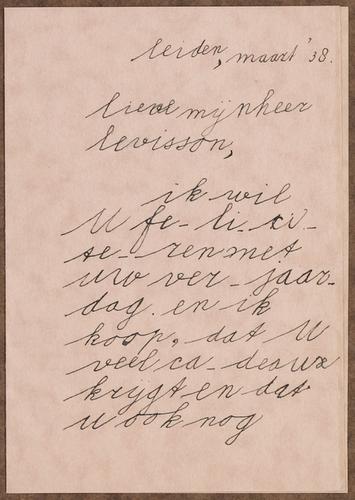 leiden, maart '38.
lieve mijnheer
levisson,
ik wil
U fe-li-ci-
te-ren met
uw ver-jaar-
dag. en ik
hoop, dat U
veel ca-deaux
krijgt en dat
u ook nog